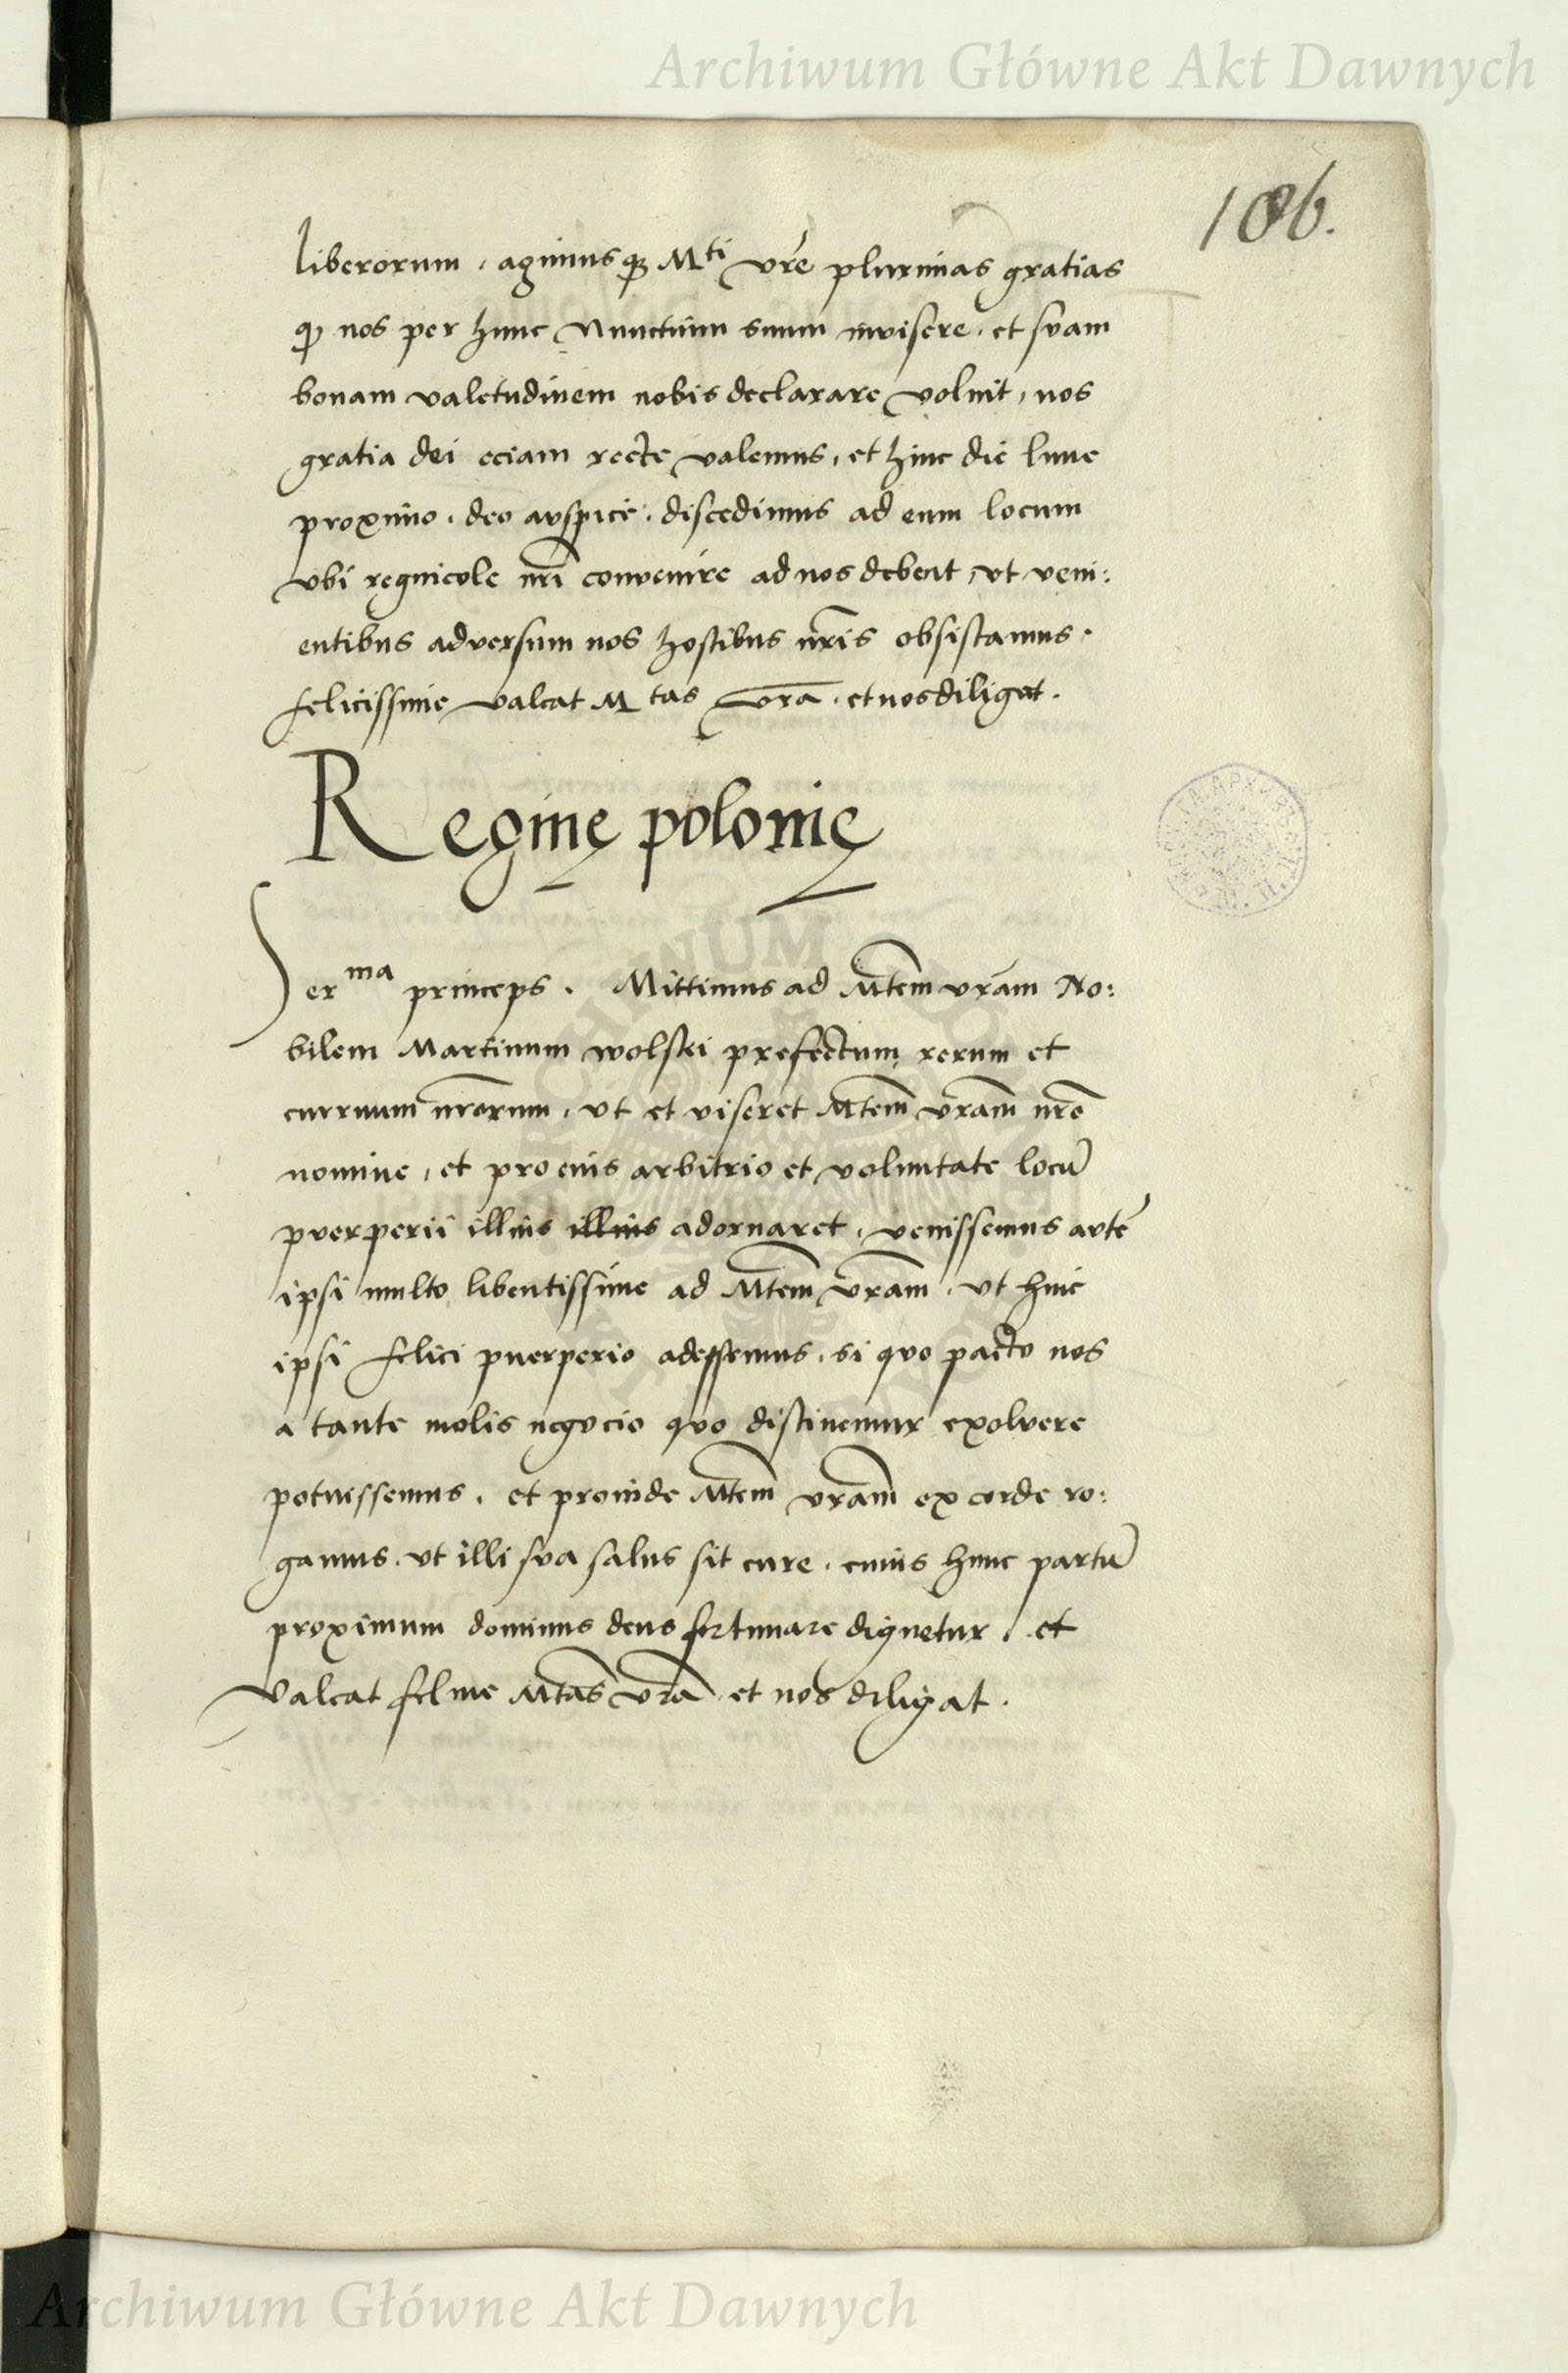 Archiwum Główne Akt Dawnych
106.
liberorum, agimusq3 M^ti vr̃e plurimas gratias
qɔ nos per hunc Nunctium suum invisere, et svam
bonam valetudinem nobis declarare voluit, nos
gratia dei eciam recte valemus, et hinc die lune
proximo, deo avspice, discedimus ad eum locum
vbi regnicole nr̃i convenire ad nos debent, vt veni:
entibus adversum nos hostibus nr̃is obsistamus.
felicissime valeat M tas vr̃a, et nos diligat.
Reginę polonię
Ser^ma princeps. Mittimus ad Mtem̃ vrãm No:
bilem Martinum wolski prefectum rerum et
curruum nr̃orum, vt et viseret Mtem̃ vrãm nr̃o
nomine, et pro eius arbitrio et voluntate locũ
pverperii illius illius adornaret, venissemus avtẽ
ipsi multo libentissime ad Mtem̃ vrãm, vt huic
ipsi felici puerperio adessemus, si qvo pacto nos
a tante molis negocio qvo distinemur exolvere
potvissemus, et proinde Mtem̃ vrãm ex corde ro:
gamus, vt illi sva salus sit cure, cuius hunc partũ
proximum dominus deus fortunare dignetur, et
valeat felme Mtas̃ vr̃a, et nos diligat.
Archiwum Główne Akt Dawnych